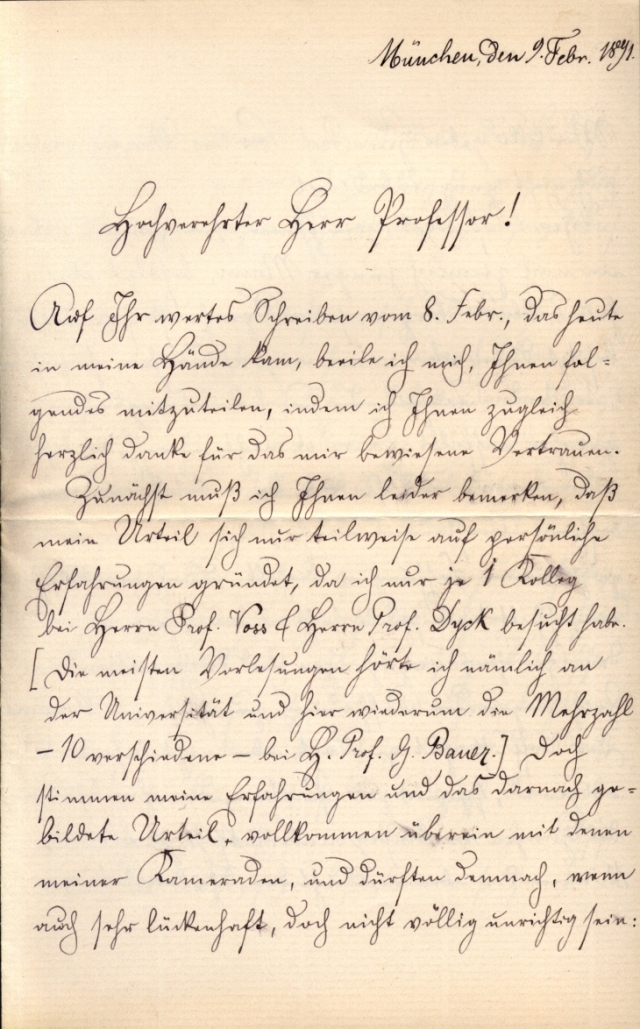 München, den 9. Febr. 1891.
Hochverehrter Herr Professor!
Auf Ihr wertes Schreiben vom 8. Febr., das heute
in meine Hände kam, beeile ich mich, Ihnen fol=
gendes mitzuteilen, indem ich Ihnen zugleich
herzlich danke für das mir bewiesene Vertrauen.
Zunächst muß ich Ihnen leider bemerken, daß
mein Urteil sich nur teilweise auf persönliche
Erfahrungen gründet, da ich nur je 1 Kolleg
bei Herrn Prof. Voss & Herrn Prof. Dyck besucht habe.
[Die meisten Vorlesungen hörte ich nämlich an
der Universität und hier wiederum die Mehrzahl
– 10 verschiedene – bei H. Prof. G. Bauer.] Doch
stimmen meine Erfahrungen und das darnach ge=
bildete Urteil, vollkommen überein mit denen
meiner Kameraden, und dürften demnach, wenn
auch sehr lückenhaft, doch nicht völlig unrichtig sein: